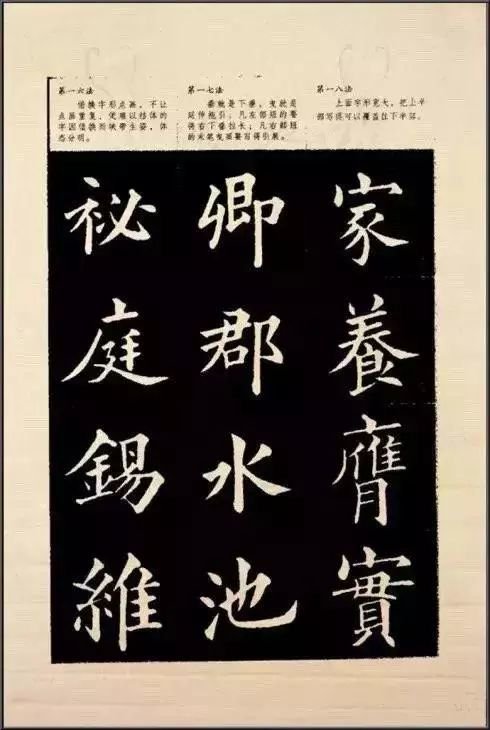 第一六法
借换字形点画，不让
点画重复，使难以结体的
字因借换而映带生姿，体
态分明。
第一七法
垂就是下垂，曳就是
延伸拖引；凡左部短的要
得右下垂拉长；凡右部短
的末笔曳画要写得引展。
第一八法
上面字形宽大，把上半
部写得可以覆盖住下半部。
祕庭錫維
卿郡水池
家養膺實